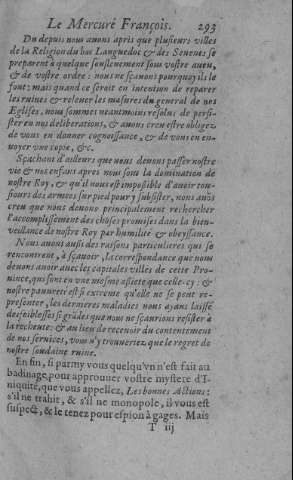 Le Mercure François. 293
Du depuis nous auons apris que plusieurs villes
de la Religion du bas Languedoc & des Seuenes se
preparent à quelque souslenement sous vostre aueu,
& de vostre ordre : nous ne sçauons pourquoy ils le
font : mais quand ce seroit en intention de reparer
les ruines & releuer les masures du general de nos
Eglises, nous sommes neantmoins resolus de persis-
ster en nos deliberations, & auons creu estre obligez
de vous en donner cognoissance, & de vous en en-
uoyer vne copie, &c.
Sçachant d'ailleurs que nous deuons passer nostre
vie & nos enfans apres nous sous la domination de
nostre Roy, & qu'il nous est impossible d'auoir tous-
jours des armees sur pied pour y subsister, nous auons
creu que nous deuons principalement rechercher
l'accomplissement des choses promises dans la bien-
veillance de nostre Roy par humilité & obeyssance.
Nous auons aussi des raisons particulieres qui se
rencontrent, à sçauoir, la correspondance que nous
deuons auoir auec les capitales villes de ceste Pro-
uince, qui sont en vne mesme assiete que celle-cy : &
nostre pauureté est si extreme qu'elle ne se peut re-
presenter, les dernieres maladies nous ayans laissé
des foiblesses si grādes que nous ne sçaurions resister à
la recheute : & au lieu de receuoir du contentement
de nos seruices, vous n'y trouueriez que le regret de
nostre soudaine ruine.
En fin, si parmy vous quelqu'vn n'est fait au
badinage, pour approuuer vostre mystere d'I-
niquité, que vous appellez, Les bonnes Actions:
s'il ne trahit, & s'il ne monopole, il vous est
suspect, & le tenez pour espion à gages. Mais
T iij